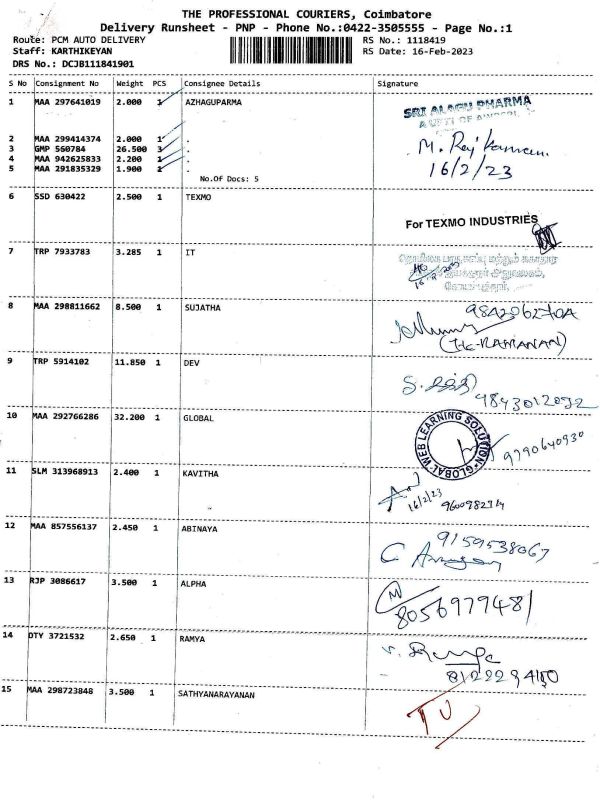 THE PROFESSIONAL COURIERS, Coimbatore
Delivery Runsheet - PNP - Phone No.:0422-3505555 - Page No.:1
Route: PCM AUTO DELIVERY
RS No.: 1118419
Staff: KARTHIKEYAN
RS Date: 16-Feb-2023
DRS No.: DCJB111841901
S No Consignment No Weight PCS Consignee Details Signature
1 MAA 297641019 2.000 1 AZHAGUPARMA
SRI ALAGU PHARMA
2 MAA 299414374 2.000 1 .
3 GMP 560784 26.500 3 .
4 MAA 942625833 2.200 1 .
5 MAA 291835329 1.900 1 .
16/2/23
No.Of Docs: 5
6 SSD 630422 2.500 1 TEXMO
For TEXMO INDUSTRIES
7 TRP 7933783 3.285 1 IT
8 MAA 298811662 8.500 1 SUJATHA
9 TRP 5914102 11.850 1 DEV
9843012092
10 MAA 292766286 32.200 1 GLOBAL
GLOBAL WEB LEARNING SOLUTION
9790640930
11 SLM 313968913 2.400 1 KAVITHA
16/2/23
12 MAA 857556137 2.450 1 ABINAYA
9159538067
13 RJP 3086617 3.500 1 ALPHA
M
8056979481
14 OTY 3721532 2.650 1 RAMYA
15 MAA 298723848 3.500 1 SATHYANARAYANAN